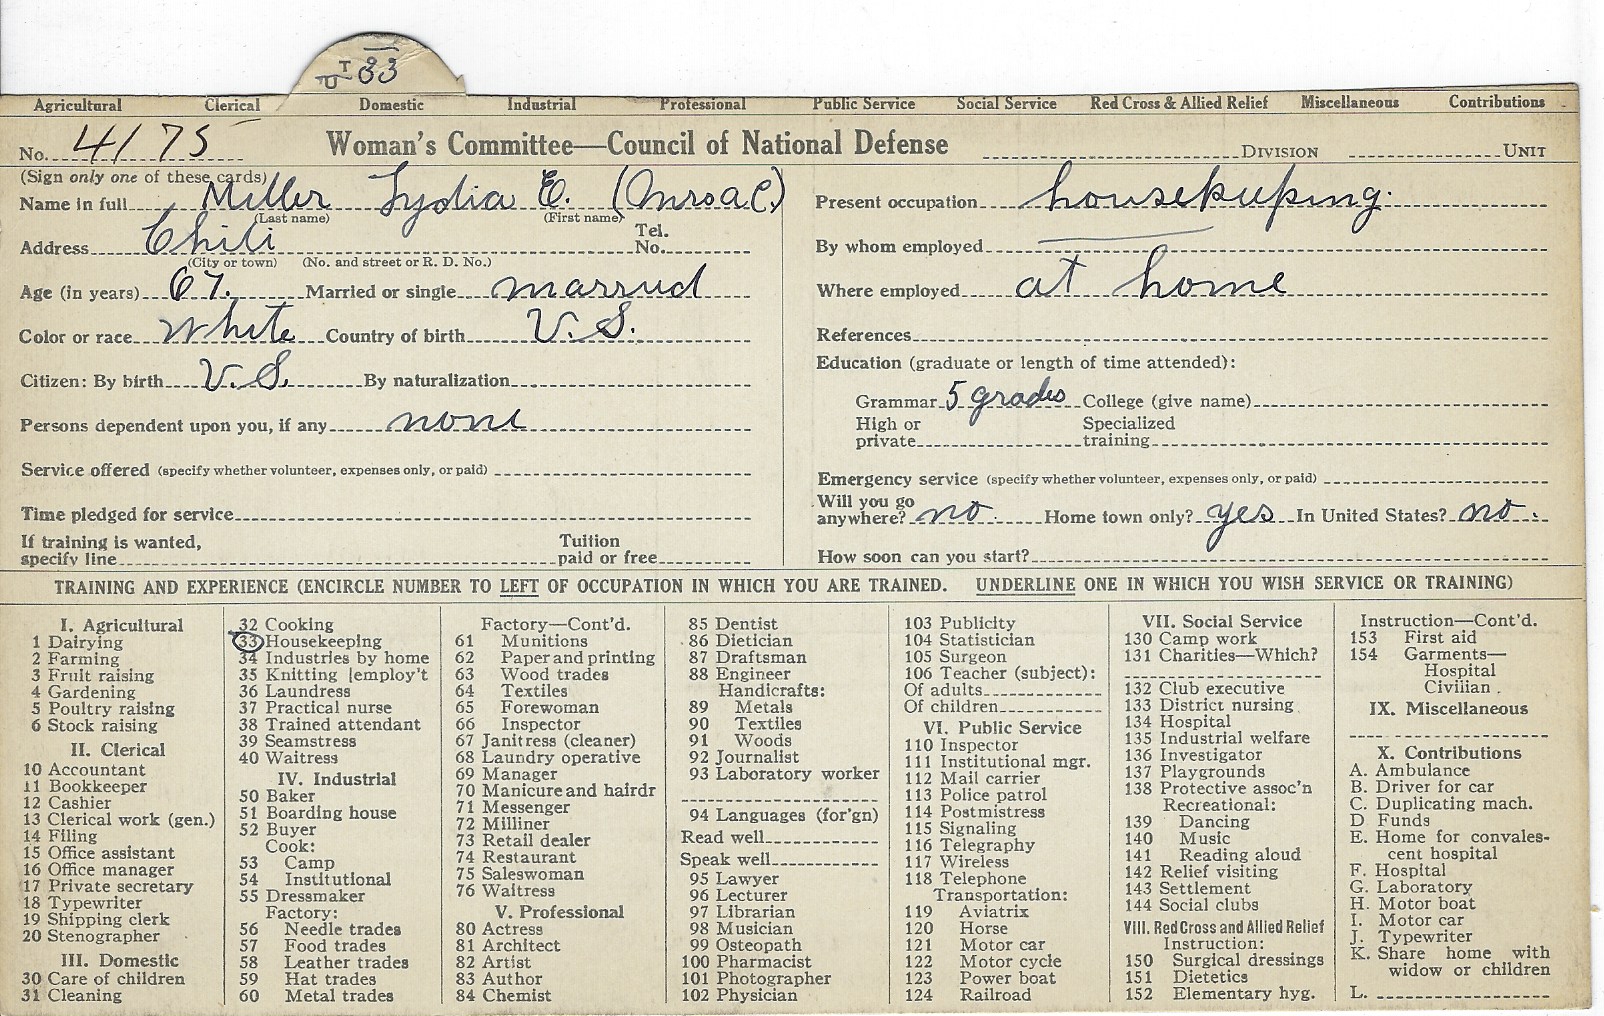 T 33
Agricultural Clerical Domestic Industrial Professional Public Service Social Service Red Cross & Allied Relief Miscellaneous Contributions
No. 4175 Woman's Committee—Council of National Defense DIVISION UNIT
(Sign only one of these cards)
Name in full Miller Lydia E. (Mrs A C.)
(Last name) (First name)
Address Chili Tel. No.
(City or town) (No. and street or R. D. No.)
Age (in years) 67. Married or single married
Color or race White Country of birth U. S.
Citizen: By birth U. S. By naturalization
Persons dependent upon you, if any none
Service offered (specify whether volunteer, expenses only, or paid)
Time pledged for service
If training is wanted, specify line Tuition paid or free
Present occupation housekeeping.
By whom employed
Where employed at home
References
Education (graduate or length of time attended):
Grammar 5 grades College (give name)
High or private Specialized training
Emergency service (specify whether volunteer, expenses only, or paid)
Will you go anywhere? no. Home town only? yes In United States? no.
How soon can you start?
TRAINING AND EXPERIENCE (ENCIRCLE NUMBER TO LEFT OF OCCUPATION IN WHICH YOU ARE TRAINED. UNDERLINE ONE IN WHICH YOU WISH SERVICE OR TRAINING)
I. Agricultural
1 Dairying
2 Farming
3 Fruit raising
4 Gardening
5 Poultry raising
6 Stock raising
II. Clerical
10 Accountant
11 Bookkeeper
12 Cashier
13 Clerical work (gen.)
14 Filing
15 Office assistant
16 Office manager
17 Private secretary
18 Typewriter
19 Shipping clerk
20 Stenographer
III. Domestic
30 Care of children
31 Cleaning
32 Cooking
33 Housekeeping
34 Industries by home
35 Knitting [employ't
36 Laundress
37 Practical nurse
38 Trained attendant
39 Seamstress
40 Waitress
IV. Industrial
50 Baker
51 Boarding house
52 Buyer
Cook:
53 Camp
54 Institutional
55 Dressmaker
Factory:
56 Needle trades
57 Food trades
58 Leather trades
59 Hat trades
60 Metal trades
Factory—Cont'd.
61 Munitions
62 Paper and printing
63 Wood trades
64 Textiles
65 Forewoman
66 Inspector
67 Janitress (cleaner)
68 Laundry operative
69 Manager
70 Manicure and hairdr
71 Messenger
72 Milliner
73 Retail dealer
74 Restaurant
75 Saleswoman
76 Waitress
V. Professional
80 Actress
81 Architect
82 Artist
83 Author
84 Chemist
85 Dentist
86 Dietician
87 Draftsman
88 Engineer
Handicrafts:
89 Metals
90 Textiles
91 Woods
92 Journalist
93 Laboratory worker
94 Languages (for'gn)
Read well
Speak well
95 Lawyer
96 Lecturer
97 Librarian
98 Musician
99 Osteopath
100 Pharmacist
101 Photographer
102 Physician
103 Publicity
104 Statistician
105 Surgeon
106 Teacher (subject):
Of adults
Of children
VI. Public Service
110 Inspector
111 Institutional mgr.
112 Mail carrier
113 Police patrol
114 Postmistress
115 Signaling
116 Telegraphy
117 Wireless
118 Telephone
Transportation:
119 Aviatrix
120 Horse
121 Motor car
122 Motor cycle
123 Power boat
124 Railroad
VII. Social Service
130 Camp work
131 Charities—Which?
132 Club executive
133 District nursing
134 Hospital
135 Industrial welfare
136 Investigator
137 Playgrounds
138 Protective assoc'n
Recreational:
139 Dancing
140 Music
141 Reading aloud
142 Relief visiting
143 Settlement
144 Social clubs
VIII. Red Cross and Allied Relief
Instruction:
150 Surgical dressings
151 Dietetics
152 Elementary hyg.
Instruction—Cont'd.
153 First aid
154 Garments—
Hospital
Civilian.
IX. Miscellaneous
X. Contributions
A. Ambulance
B. Driver for car
C. Duplicating mach.
D Funds
E. Home for convales-
cent hospital
F. Hospital
G. Laboratory
H. Motor boat
I. Motor car
J. Typewriter
K. Share home with
widow or children
L.